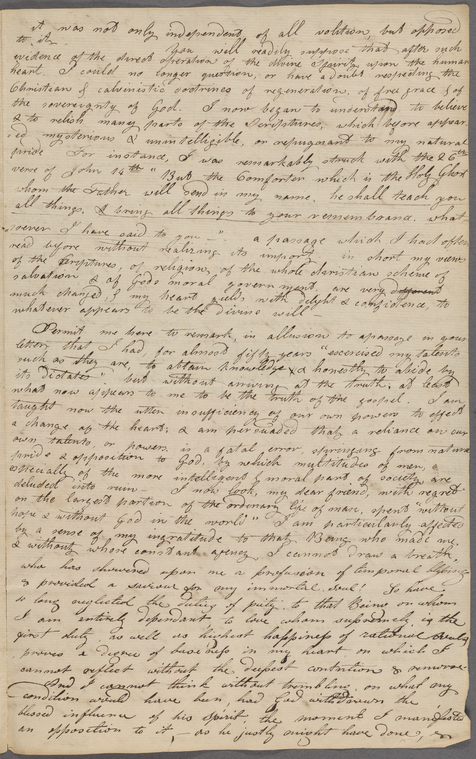 it was not only independent of all volition, but opposed
to it. You will readily suppose that after such
evidence of the direct operation of the divine Spirit, upon the human
heart, I could no longer question, or have a doubt respecting the
Christian & calvinistic doctrines of regeneration, of free grace & of
the sovereignty of God. I now began to understand to believe
& to relish many parts of the Scriptures, which before appear
ed mysterious & unintelligible, or repugnant to my natural
pride. For instance, I was remarkably struck with the 26th
verse of John 14th "But the Comforter which is the Holy Ghost
whom the Father will send in my name, he shall teach you
all things, & bring all things to your remembrance, what
soever I have said to you—" a passage which I had often
read before without realizing its import. In short my views
of the Scriptures, of religion, of the whole christian scheme of
salvation & of Gods moral government, are very different
much changed & my heart yields with delight & confidence, to
whatever appears to be the divine will—
Permit me here to remark, in allusion to a passage in your
letter, that I had for almost fifty years "exercised my talents
such as they are, to obtain knowledge & honestly to abide by
its dictates" but without arriving at the truth, at least
what now appears to me to be the truth of the gospel. I am
taught now the utter insufficiency of our own powers to effect
a change of the heart; & am persuaded that a reliance on our
own talents, or powers, is a fatal error, springing from natural
pride & opposition to God, by which multitudes of men,
especially of the more intelligent & moral part of society are
deluded into ruin— I now look, my dear friend, with regret
on the largest portion of the ordinary life of man, spent "without
hope & without God in the world" I am particularly affected
by a sense of my ingratitude to that Being who made me,
& without whose constant agency I cannot draw a breath,
who has showered upon me a profusion of temporal blessings
& provided a saviour for my immortal soul! To have
so long neglected the duties of piety to that Being on whom
I am entirely dependant to love whom supremely is the
first duty, as well as highest happiness of rational souls,
proves a degree of baseness in my heart on which I
cannot reflect without the deepest contrition & remorse—
And I cannot think without trembling, on what my
condition would have been, had God withdrawn the
blessed influence of his spirit, the moment I manifested
an opposition to it,— as he justly might have done,